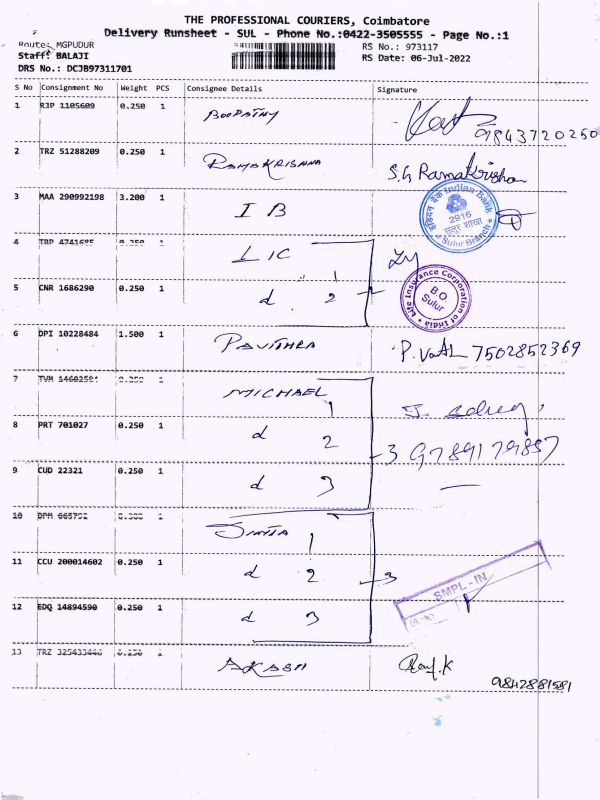 THE PROFESSIONAL COURIERS, Coimbatore
Delivery Runsheet - SUL - Phone No.:0422-3505555 - Page No.:1
Route: MGPUDUR
RS No.: 973117
Staff: BALAJI
RS Date: 06-Jul-2022
DRS No.: DCJB97311701
S No Consignment No Weight PCS Consignee Details Signature
1 RJP 1105609 0.250 1 BOOPATHY
9843720250
2 TRZ 51288209 0.250 1 RAMAKRISHNA S.G Ramakrishna
3 MAA 290992198 3.200 1 I B
इंडियन बैंक Indian Bank
2916
सुलूर शाखा
Sulur Branch
4 TRP 0.250 1 LIC 1
5 CNR 1686290 0.250 1 d 2 2
Life Insurance Corporation of India
B.O
Sulur
6 DPI 10228484 1.500 1 PAVITHRA P. 7502852369
7 TVM 0.250 1 MICHAEL 1
8 PRT 701027 0.250 1 d 2 3 9789179857
9 CUD 22321 0.250 1 d 3
10 DPM 0.300 1 1
11 CCU 200014602 0.250 1 d 2 3
SMPL-IN
12 EDQ 14894590 0.250 1 d 3
13 TRZ 0.250 1 AKASH
9842881581